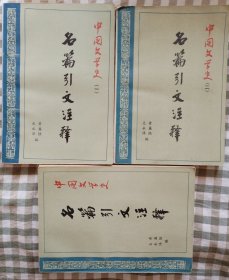 中国文学史(一)
名篇引文注释
中国文学史(二)
名篇引文注释
中国文学史
名篇引文注释